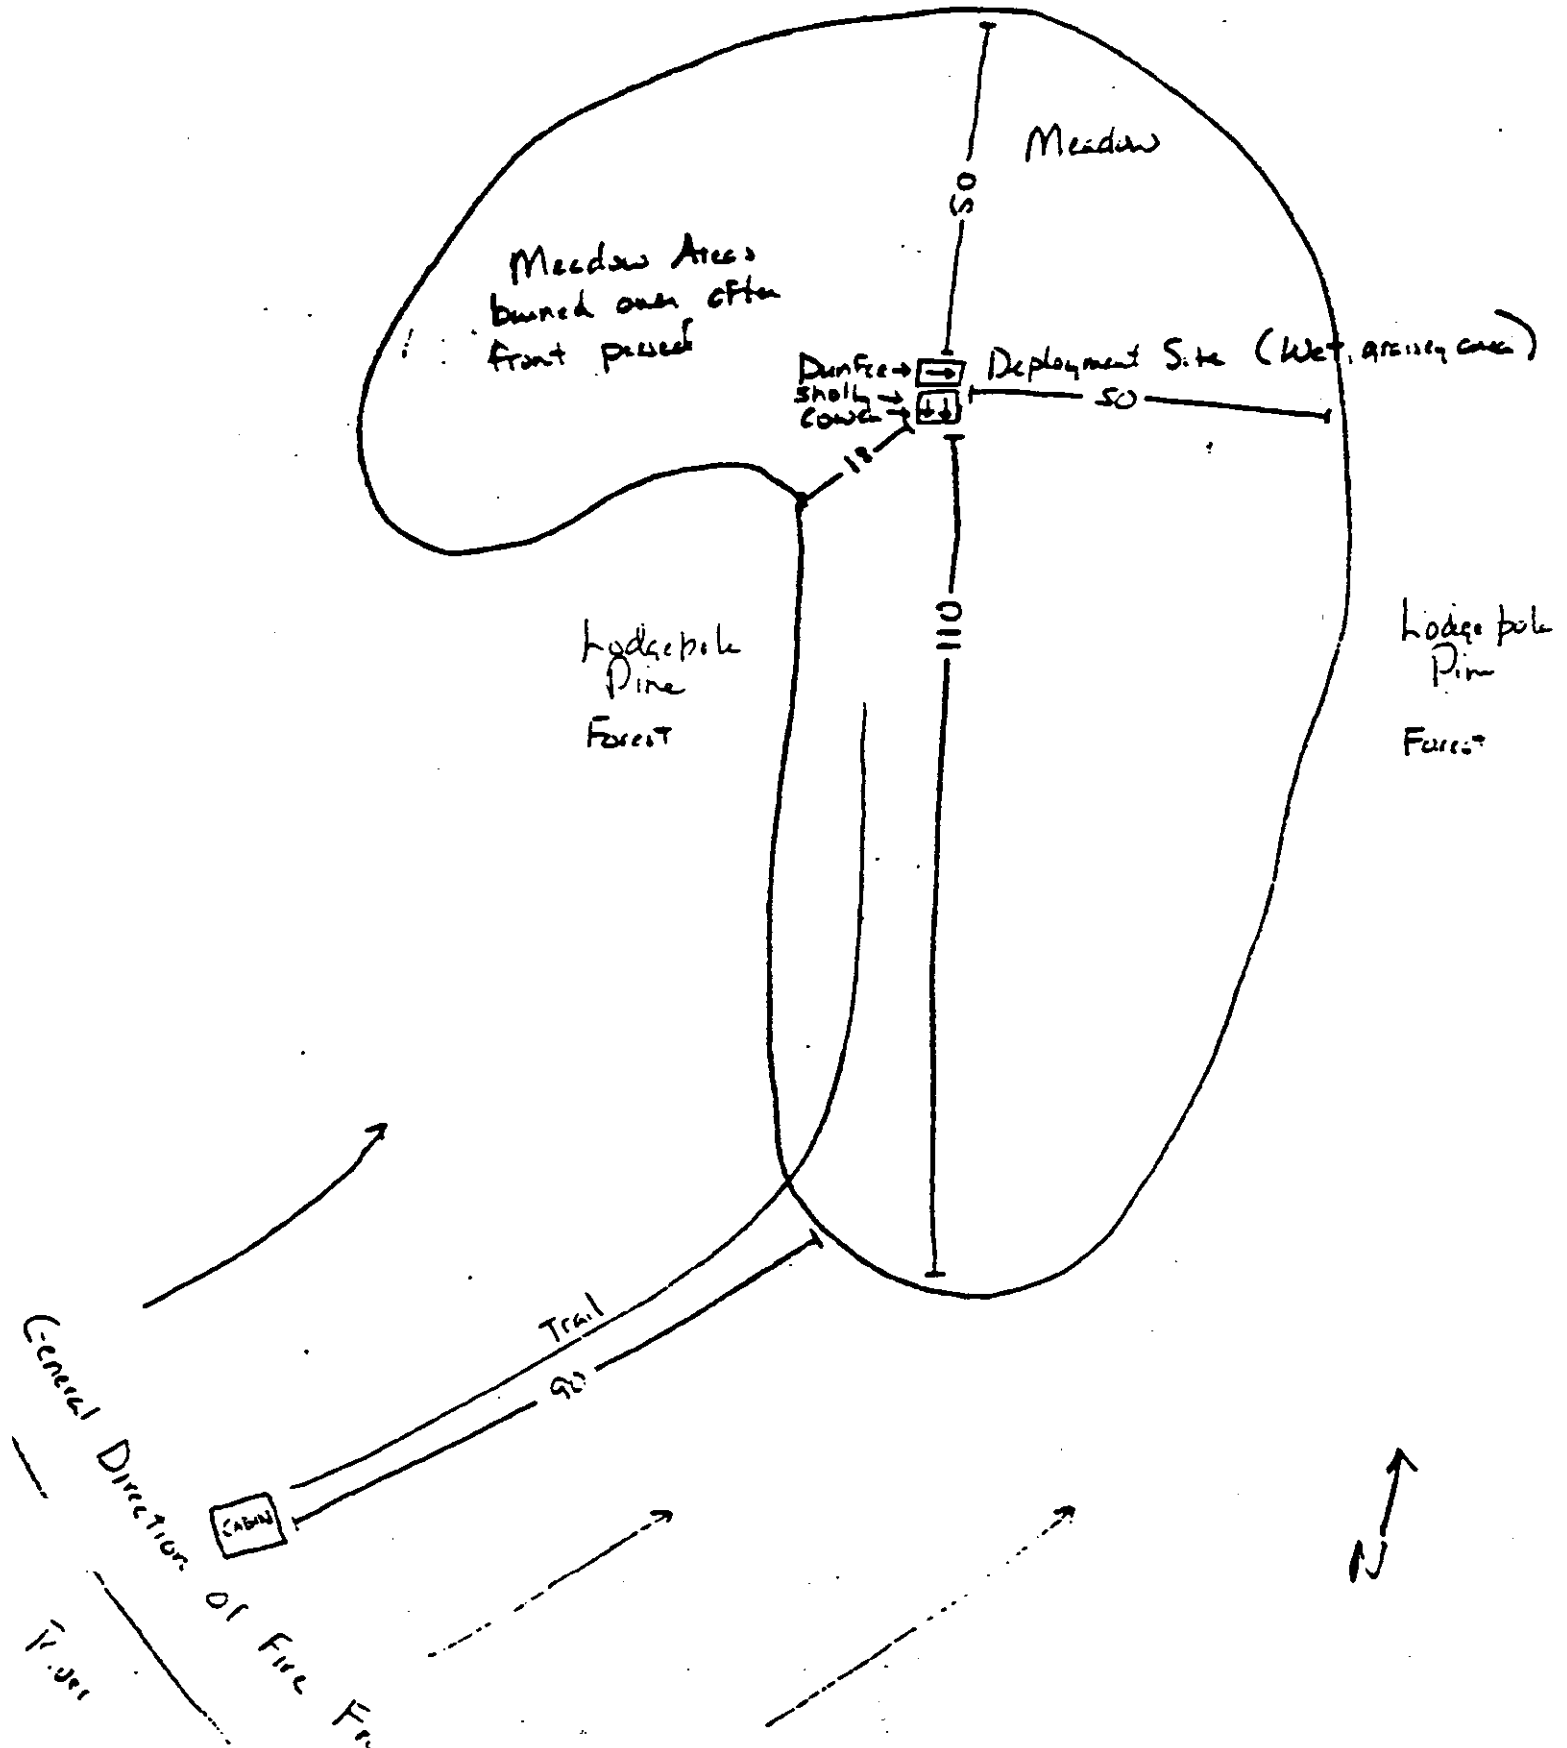 Meadow
50
Meadow Areas
burned over after
front passed
Dunfee → Deployment Site (Wet, grassy area)
Sholly →
Cowan →
50
18
110
Lodgepole
Pine
Forest
Lodgepole
Pine
Forest
Trail
90
CABIN
General Direction of Fire
River
N